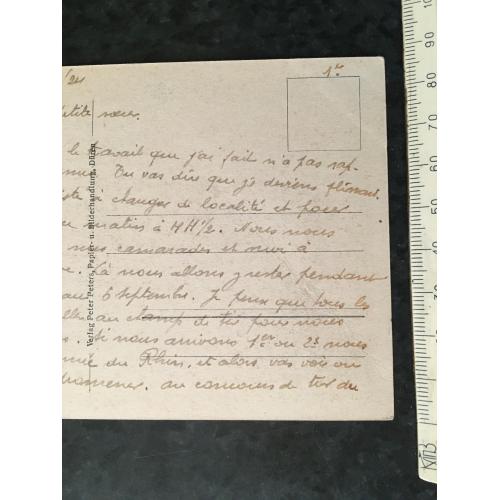 /24
1er
petite sœur.
le travail que j'ai fait n'a pas rap-
Tu vas dire que je deviens flémard.
à changer de localité et pour
matin à 4H1/2. Nous nous
mes camarades et moi à
Là nous allons y rester pendant
5 septembre. Je pense que tous les
au champ de tir pour nous
Si nous arrivons 1er ou 2e nous
du Rhin, et alors vas vois on
au concours de tir du
Verlag Peter Peters, Papier- u. Bilderhandlung, Düren
40
50
60
70
80
90
100